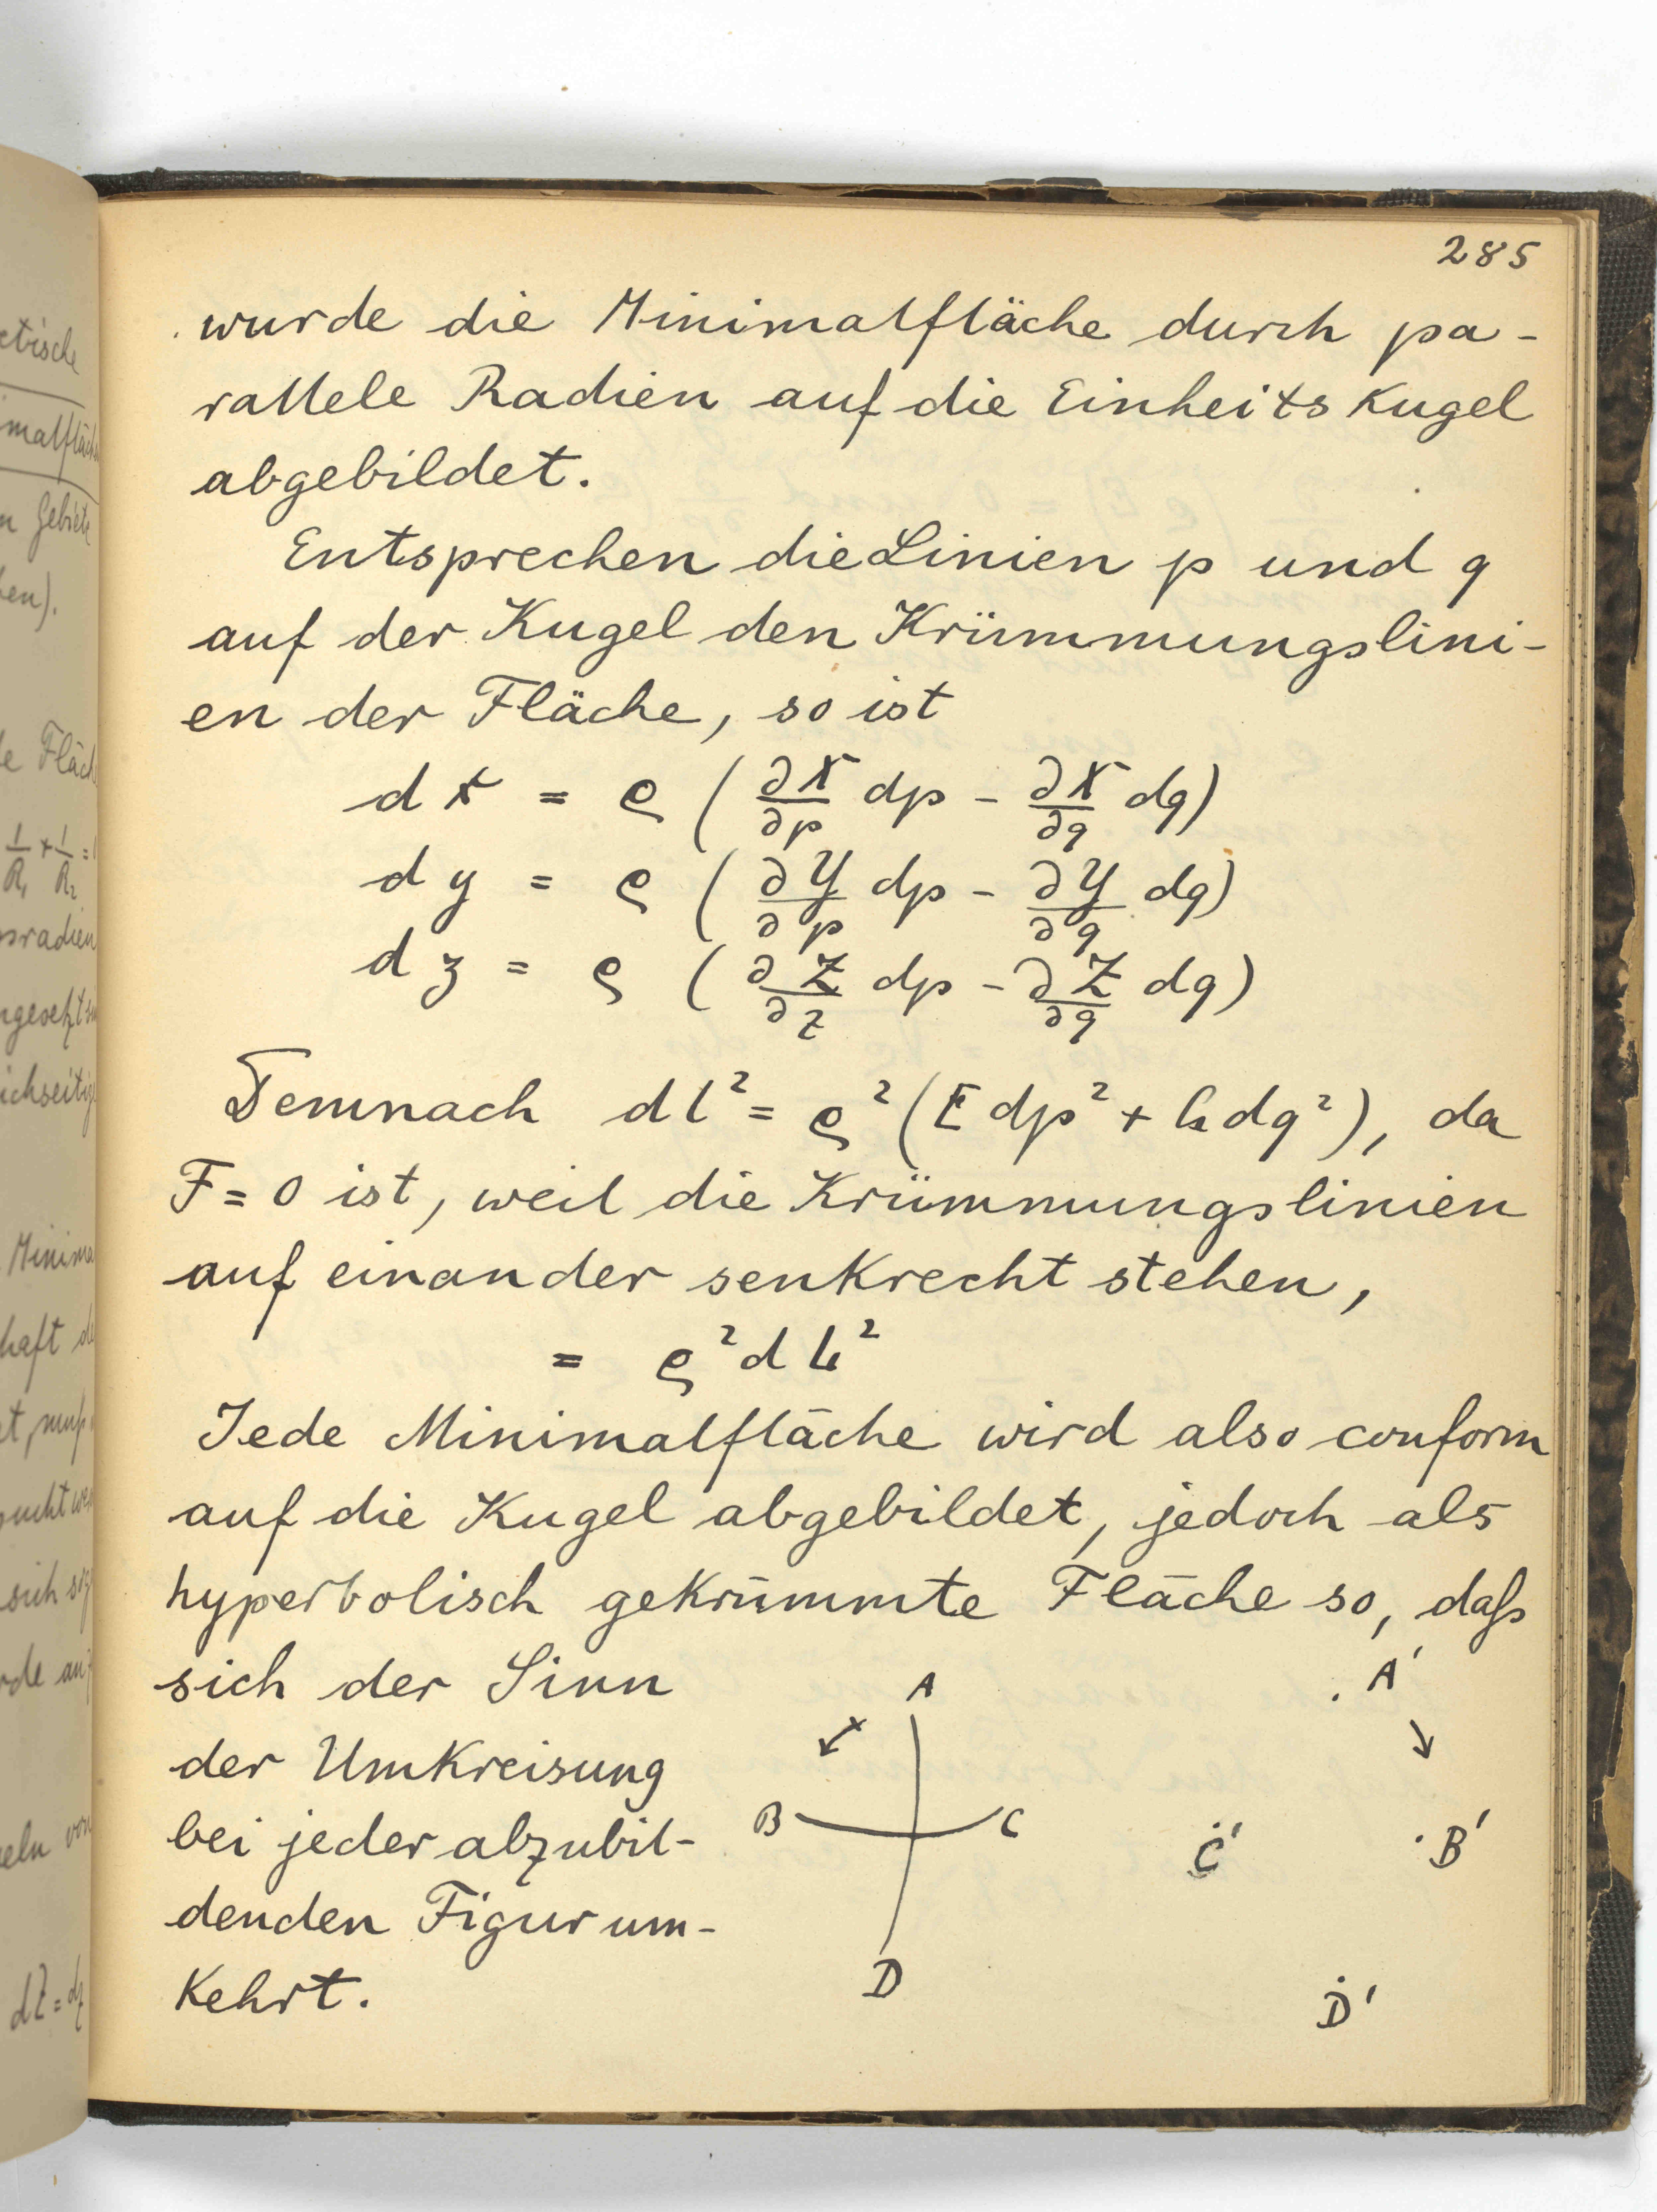 285
wurde die Minimalfläche durch pa-
rallele Radien auf die Einheitskugel
abgebildet.
Entsprechen die Linien p und q
auf der Kugel den Krümmungslini-
en der Fläche, so ist
dx = ρ (∂X/∂p dp - ∂X/∂q dq)
dy = ρ (∂Y/∂p dp - ∂Y/∂q dq)
dz = ρ (∂Z/∂z dp - ∂Z/∂q dq)
Demnach dl² = ρ² (E dp² + G dq²), da
F = 0 ist, weil die Krümmungslinien
auf einander senkrecht stehen,
= ρ² dL²
Jede Minimalfläche wird also conform
auf die Kugel abgebildet, jedoch als
hyperbolisch gekrümmte Fläche so, daß
sich der Sinn
der Umkreisung
bei jeder abzubil-
denden Figur um-
kehrt.
A
B C
D
A'
C' B'
D'
ctische
n Gebiete
en).
e Fläch
1/R₁ + 1/R₂ =
sradien
ichseitig
Minima
haft de
sich
rde
eln von
dZ = dz